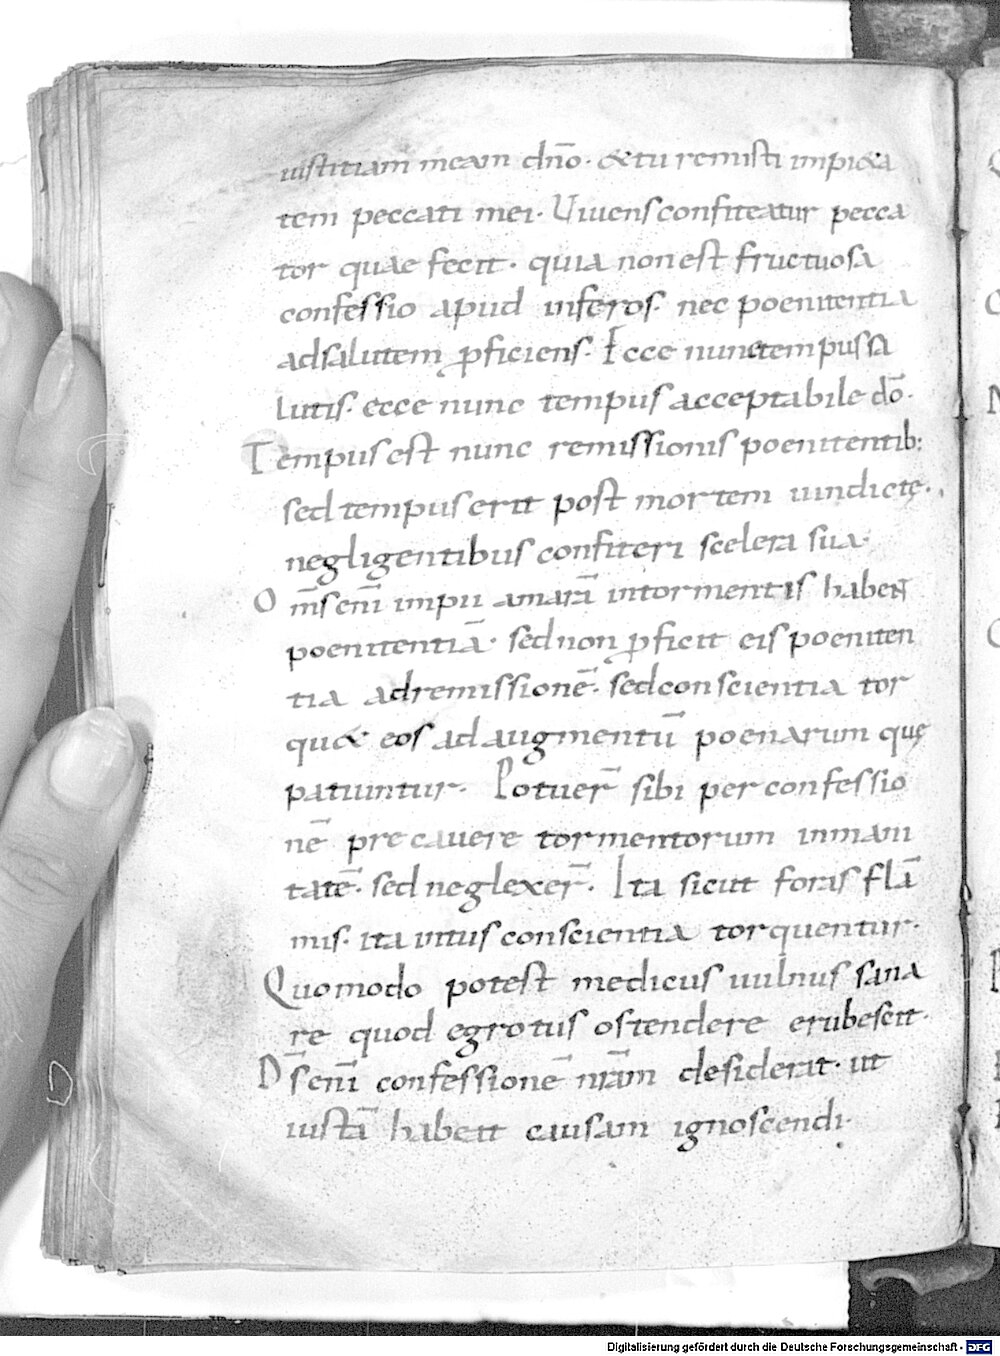 iustitiam meam dn̄o· &tu remisti impi&a
tem peccati mei· Viuens confiteatur pecca
tor quae fecit· quia non est fructuosa
confessio apud inferos· nec poenitentia
ad salutem ꝓficiens· Ecce nunc tempus sa
lutis· ecce nunc tempus acceptabile dō·
Tempus est nunc remissionis poenitentib:
sed tempus erit post mortem uindictę·
negligentibus confiteri scelera sua·
Om̄s enī impii amarā in tormentis habent
poenitentiā· sed non ꝓficit eis poeniten
tia ad remissionē· sed conscientia tor
qu& eos ad augmentū poenarum quę
patiuntur· Potuer̄ sibi per confessio
nē precauere tormentorum inmani
tatē· sed neglexer̄· Ita sicut foras flā
mis· ita intus conscientia torquentur·
Quomodo potest medicus uulnus sana
re quod egrotus ostendere erubescit·
Ds̄ enī confessionē nr̄am desiderat· ut
iustā habeat causam ignoscendi·
Digitalisierung gefördert durch die Deutsche Forschungsgemeinschaft - DFG